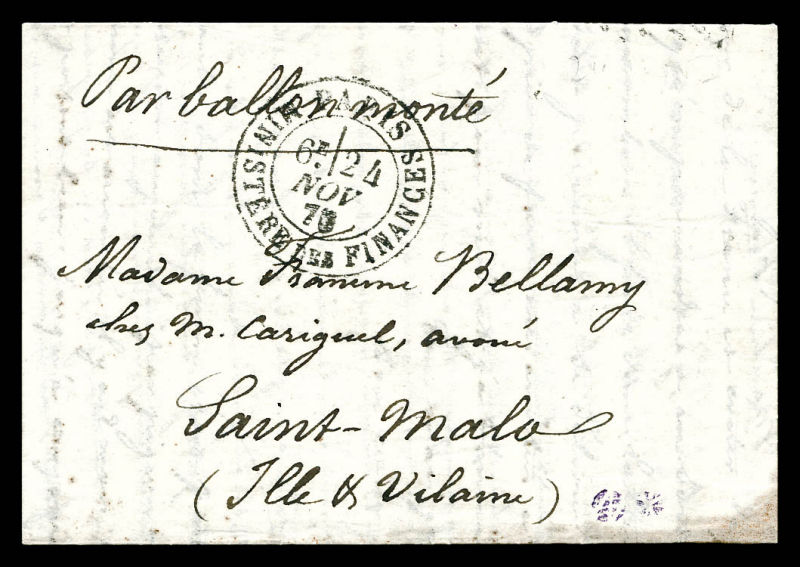 Par ballon monté
PARIS SEC
MINISTÈRE DES FINANCES
6E/24
NOV
70
Madame Francine Bellamy
chez M. Cariguel, avoué
Saint-Malo
(Ille & Vilaine)